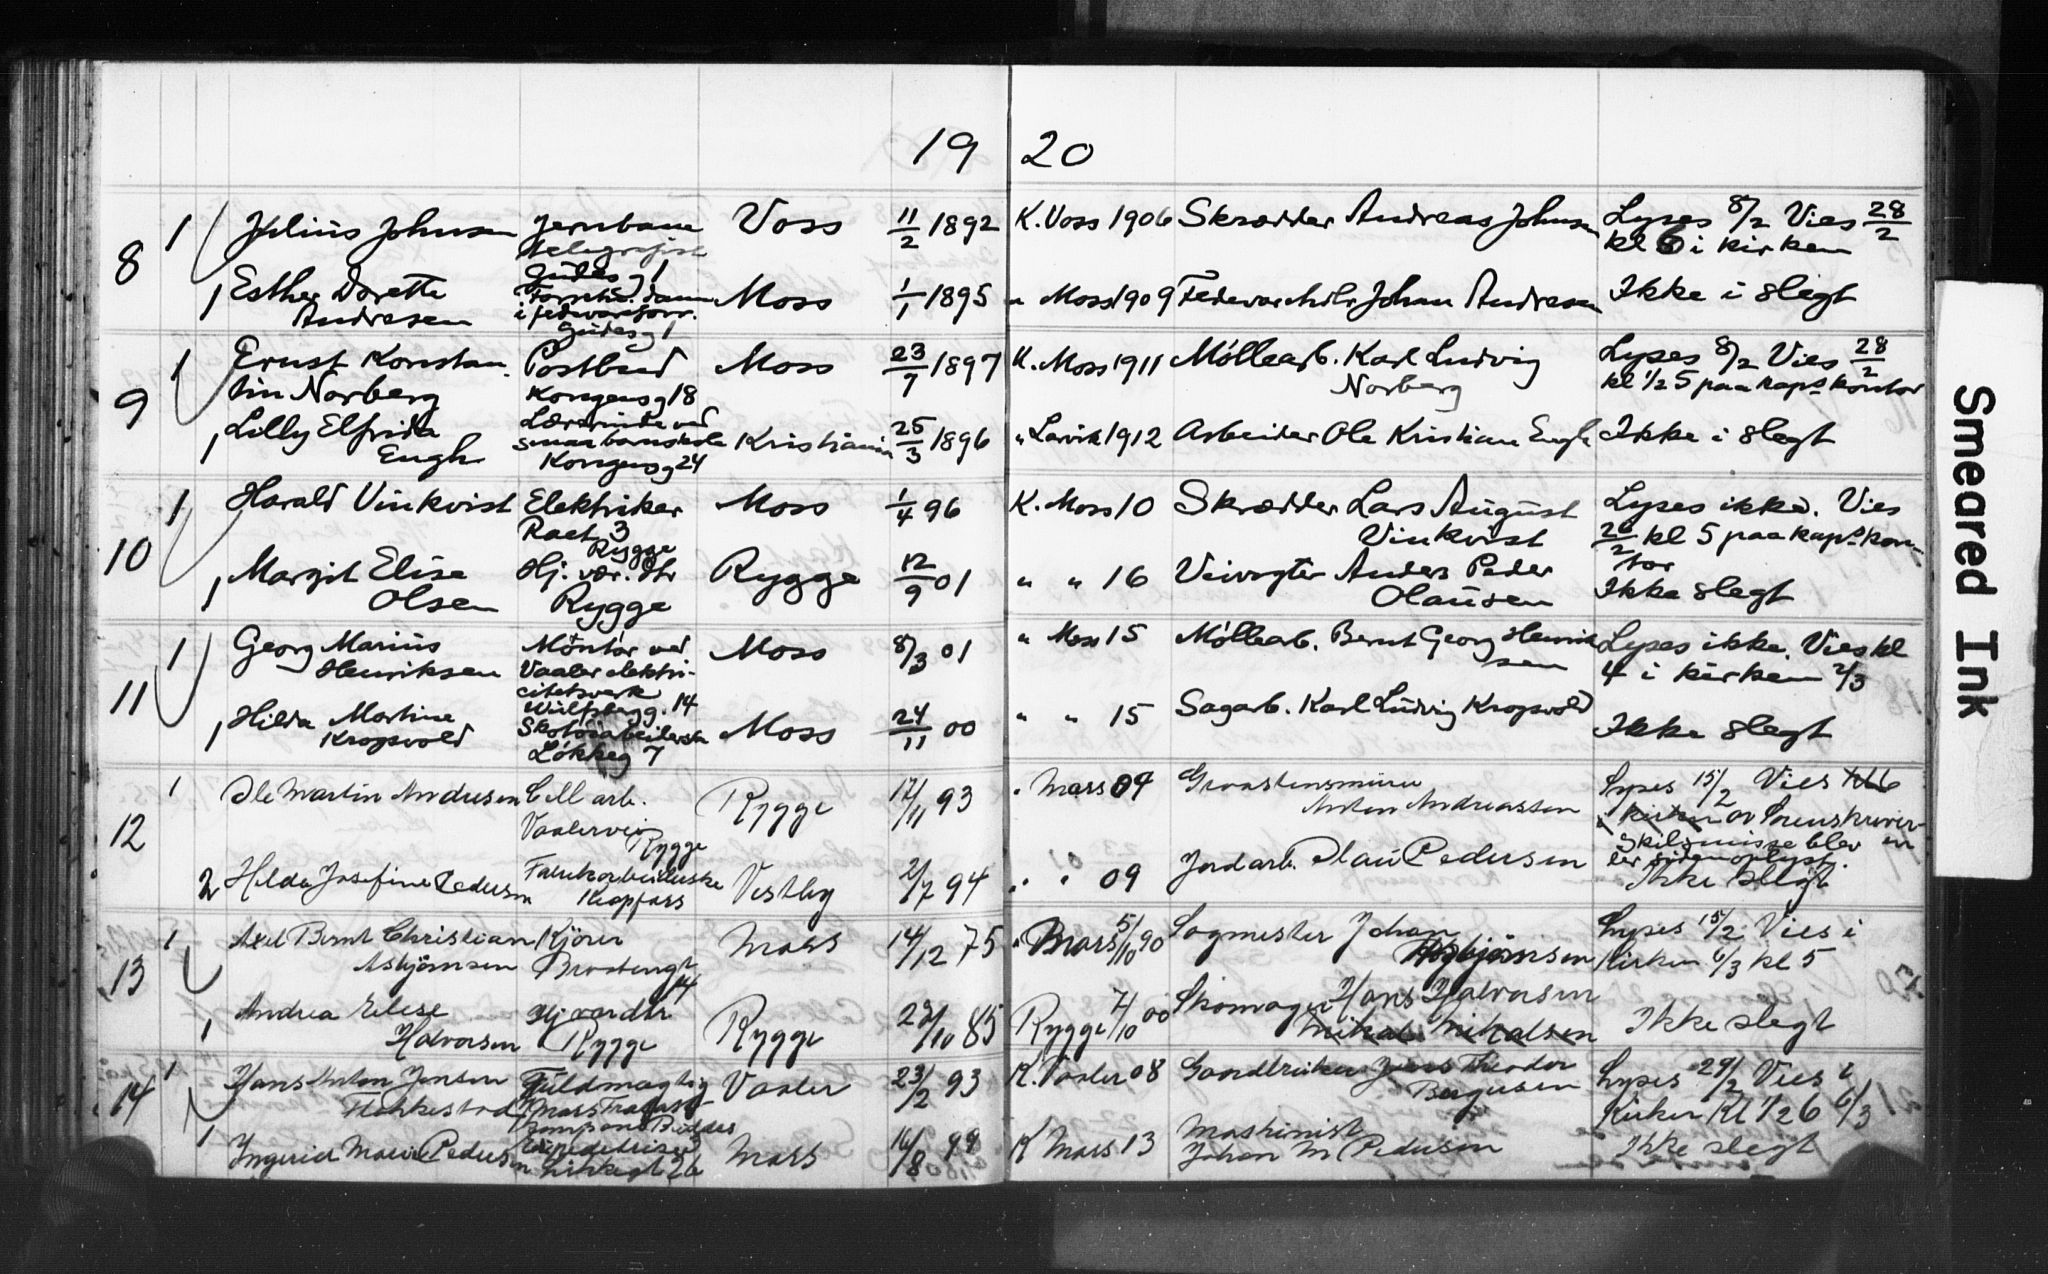 19 20
8
1 Julius Johnsen Jernbane Voss 11/2 1892 K. Voss 1906 Skrædder Andreas Johnsen Lyses 8/2 Vies 28/2
telegrafist kl 6 i kirken
Gudesg 1
1 Esther Dorette Moss 1/1 1895 " Moss 1909 Fedevarehdlr Johan Andresen Ikke i slegt
Andresen i fedevareforr.
Gudesg 1
9
1 Ernst Konstan Postbud Moss 23/7 1897 K. Moss 1911 Møllearb. Karl Ludvig Lyses 8/2 Vies 28/2
tin Norberg Kongensg 18 Norberg kl 1/2 5 paa kaps kontor
1 Lilly Elfrida Lærerinde ved Kristiania 25/3 1896 " Larvik 1912 Arbeider Ole Kristian Engh Ikke i slegt
Engh smaabarnskole
Kongensg 24
10
1 Harald Vinkvist Elektriker Moss 1/4 96 K. Moss 10 Skrædder Lars August Lyses ikke. Vies
Raet 3 Vinkvist 26/2 kl 5 paa kaps kon-
Rygge tor
1 Margit Elise Hj. vær. dtr Rygge 12/9 01 " " 16 Veivogter Anders Peder Ikke slegt
Olsen Rygge Olausen
11
1 Georg Marius Montør ved Moss 8/3 01 " Moss 15 Møllearb. Bernt Georg Henrik Lyses ikke. Vies kl
Henriksen Vaaler elektri- sen 4 i kirken 2/3
citetsverk
Wulfsbergg. 14
1 Hilda Martine Skotøiarbeiderske Moss 24/11 00 " " 15 Sagarb. Karl Ludvig Kropsvold Ikke slegt
Kropsvold Løkkeg 7
12
1 Ole Martin Andersen Cell arb. Rygge 17/11 93 " Moss 04 Graastensmurer Lyses 15/2 Vies kl 6
Vaalervei Anton Andreassen i kirken av Sorenskriver-
Rygge en
Skilsmisse blev
2 Hilda Josefine Pedersen Fabrikarbeiderske Vestby 2/7 94 " " 09 Jordarb. Olaus Pedersen ler siden oplyst.
Kropfoss Ikke slegt
13
1 Axel Bernt Christian Kjører Moss 14/12 75 " Moss 5/10 90 Sagmester Johan Lyses 15/2 Vies i
Asbjørnsen 14 Asbjørnsen Kirken 6/3 kl 5
1 Andrea Elise Hj vær dtr Rygge 23/10 85 Rygge 7/10 00 Skomager Hans Halvorsen Ikke slegt
Halvorsen Rygge Mikal Mikalsen
14
1 Hans Anton Jensen Fuldmægtig Vaaler 23/2 93 K. Vaaler 08 Gaardbruker Jens Theodor Lyses 29/2 Vies i
Flakkestad Bergersen Kirken Kl 1/2 6 6/3
1 Ingrid Marie Pedersen Expeditrise Moss 16/8 99 K Moss 13 Maskinist Ikke slegt
Kirkegt 26 Johan M Pedersen
Smeared Ink